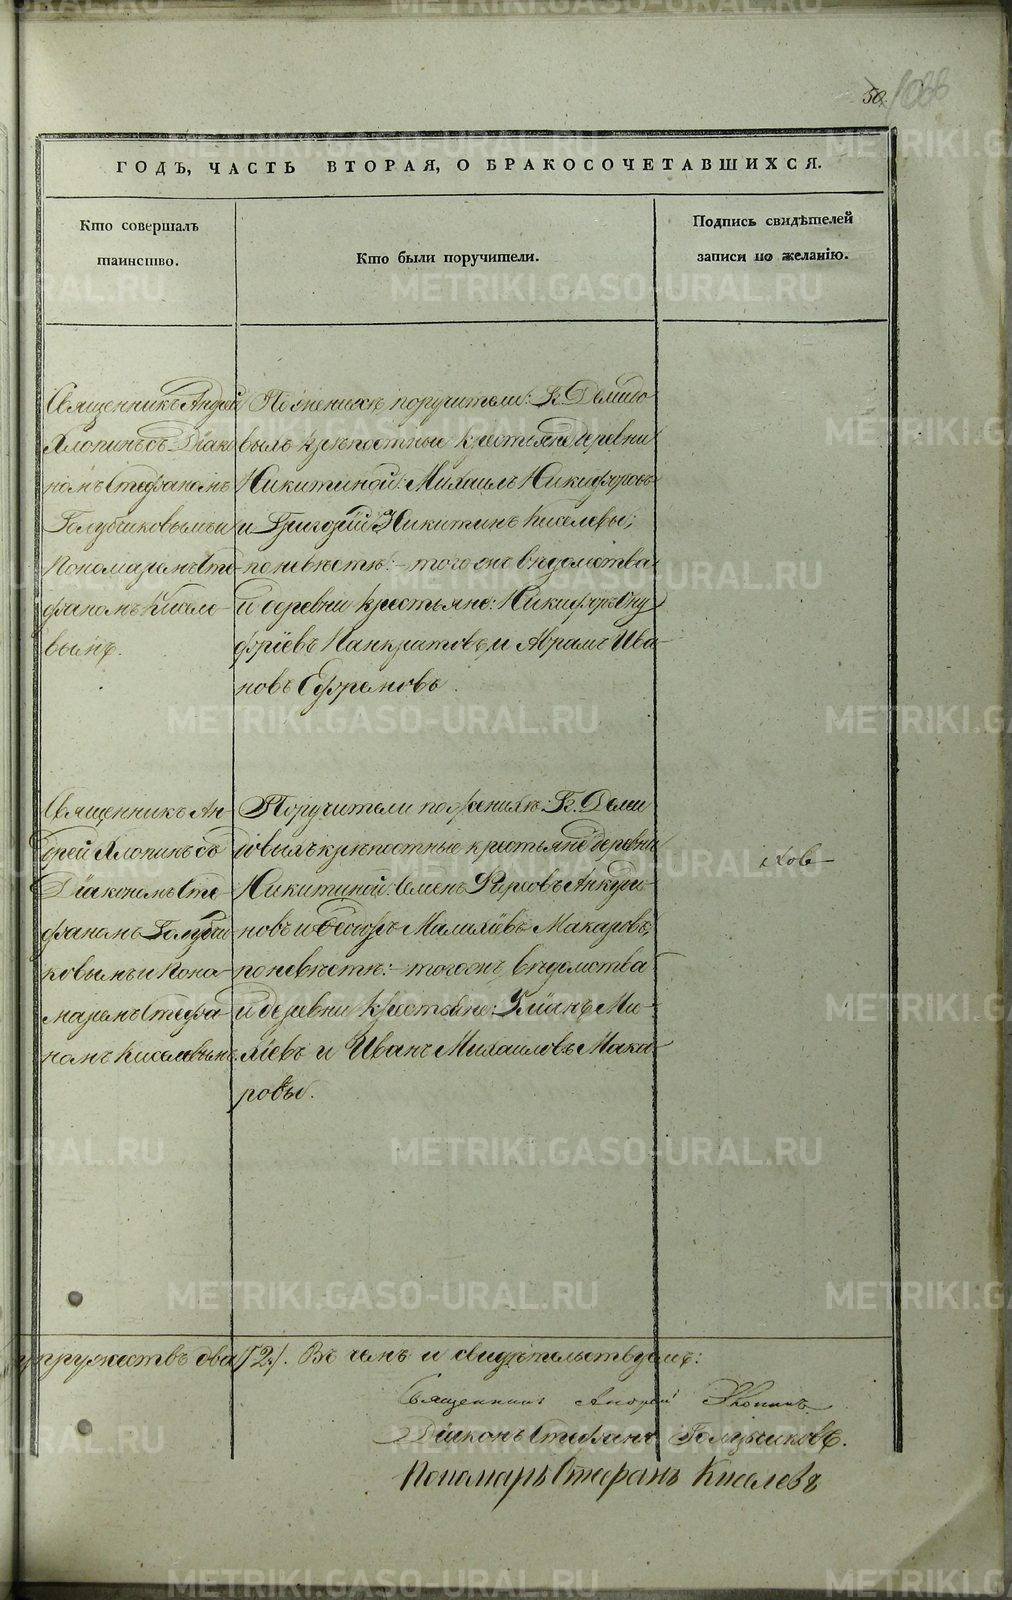 50.
1066
ГОДЪ, ЧАСТЬ ВТОРАЯ, О БРАКОСОЧЕТАВШИХСЯ.
Кто совершалъ
таинство.
Кто были поручители.
Подпись свидѣтелей
записи по желанію.
Священникъ Андрей
Хлопинъ съ Діако
номъ Стефаномъ
Голубчиковымъ и
Пономаремъ Сте-
фаномъ Кисело-
вымъ.
По женихѣ поручители: Г. Демидо
выхъ крѣпостные крестьяне деревни
Никитиной: Михаилъ Никифоровъ
и Григорій Никитинъ Киселевы;
по невѣстѣ: тогожъ вѣдомства
и деревни крестьяне: Никифоръ Ону
фріевъ Панкратовъ, и Абрамъ Ива-
новъ Ефремовъ.
Священникъ Ан-
дрей Хлопинъ съ
Діакономъ Сте
фаномъ Голубчи
ковымъ и Поно-
маремъ Стефа-
номъ Киселевымъ
Поручители по женихѣ: Г. Деми
довыхъ крѣпостные крестьяне деревни
Никитиной: Семенъ Анкуди-
новъ и Ѳеодоръ Малахіевъ Макаровъ;
по невѣстѣ: тогожъ вѣдомства
и деревни крестьяне: Ми-
хѣевъ и Иванъ Михаиловъ Мака-
ровы.
ховъ
супружествъ два /2./. Въ чемъ и свидѣтельствуемъ:
Священникъ Андрей Хлопинъ
Діаконъ Стефанъ Голубчиковъ.
Пономарь Стефанъ Киселевъ
METRIKI.GASO-URAL.RU